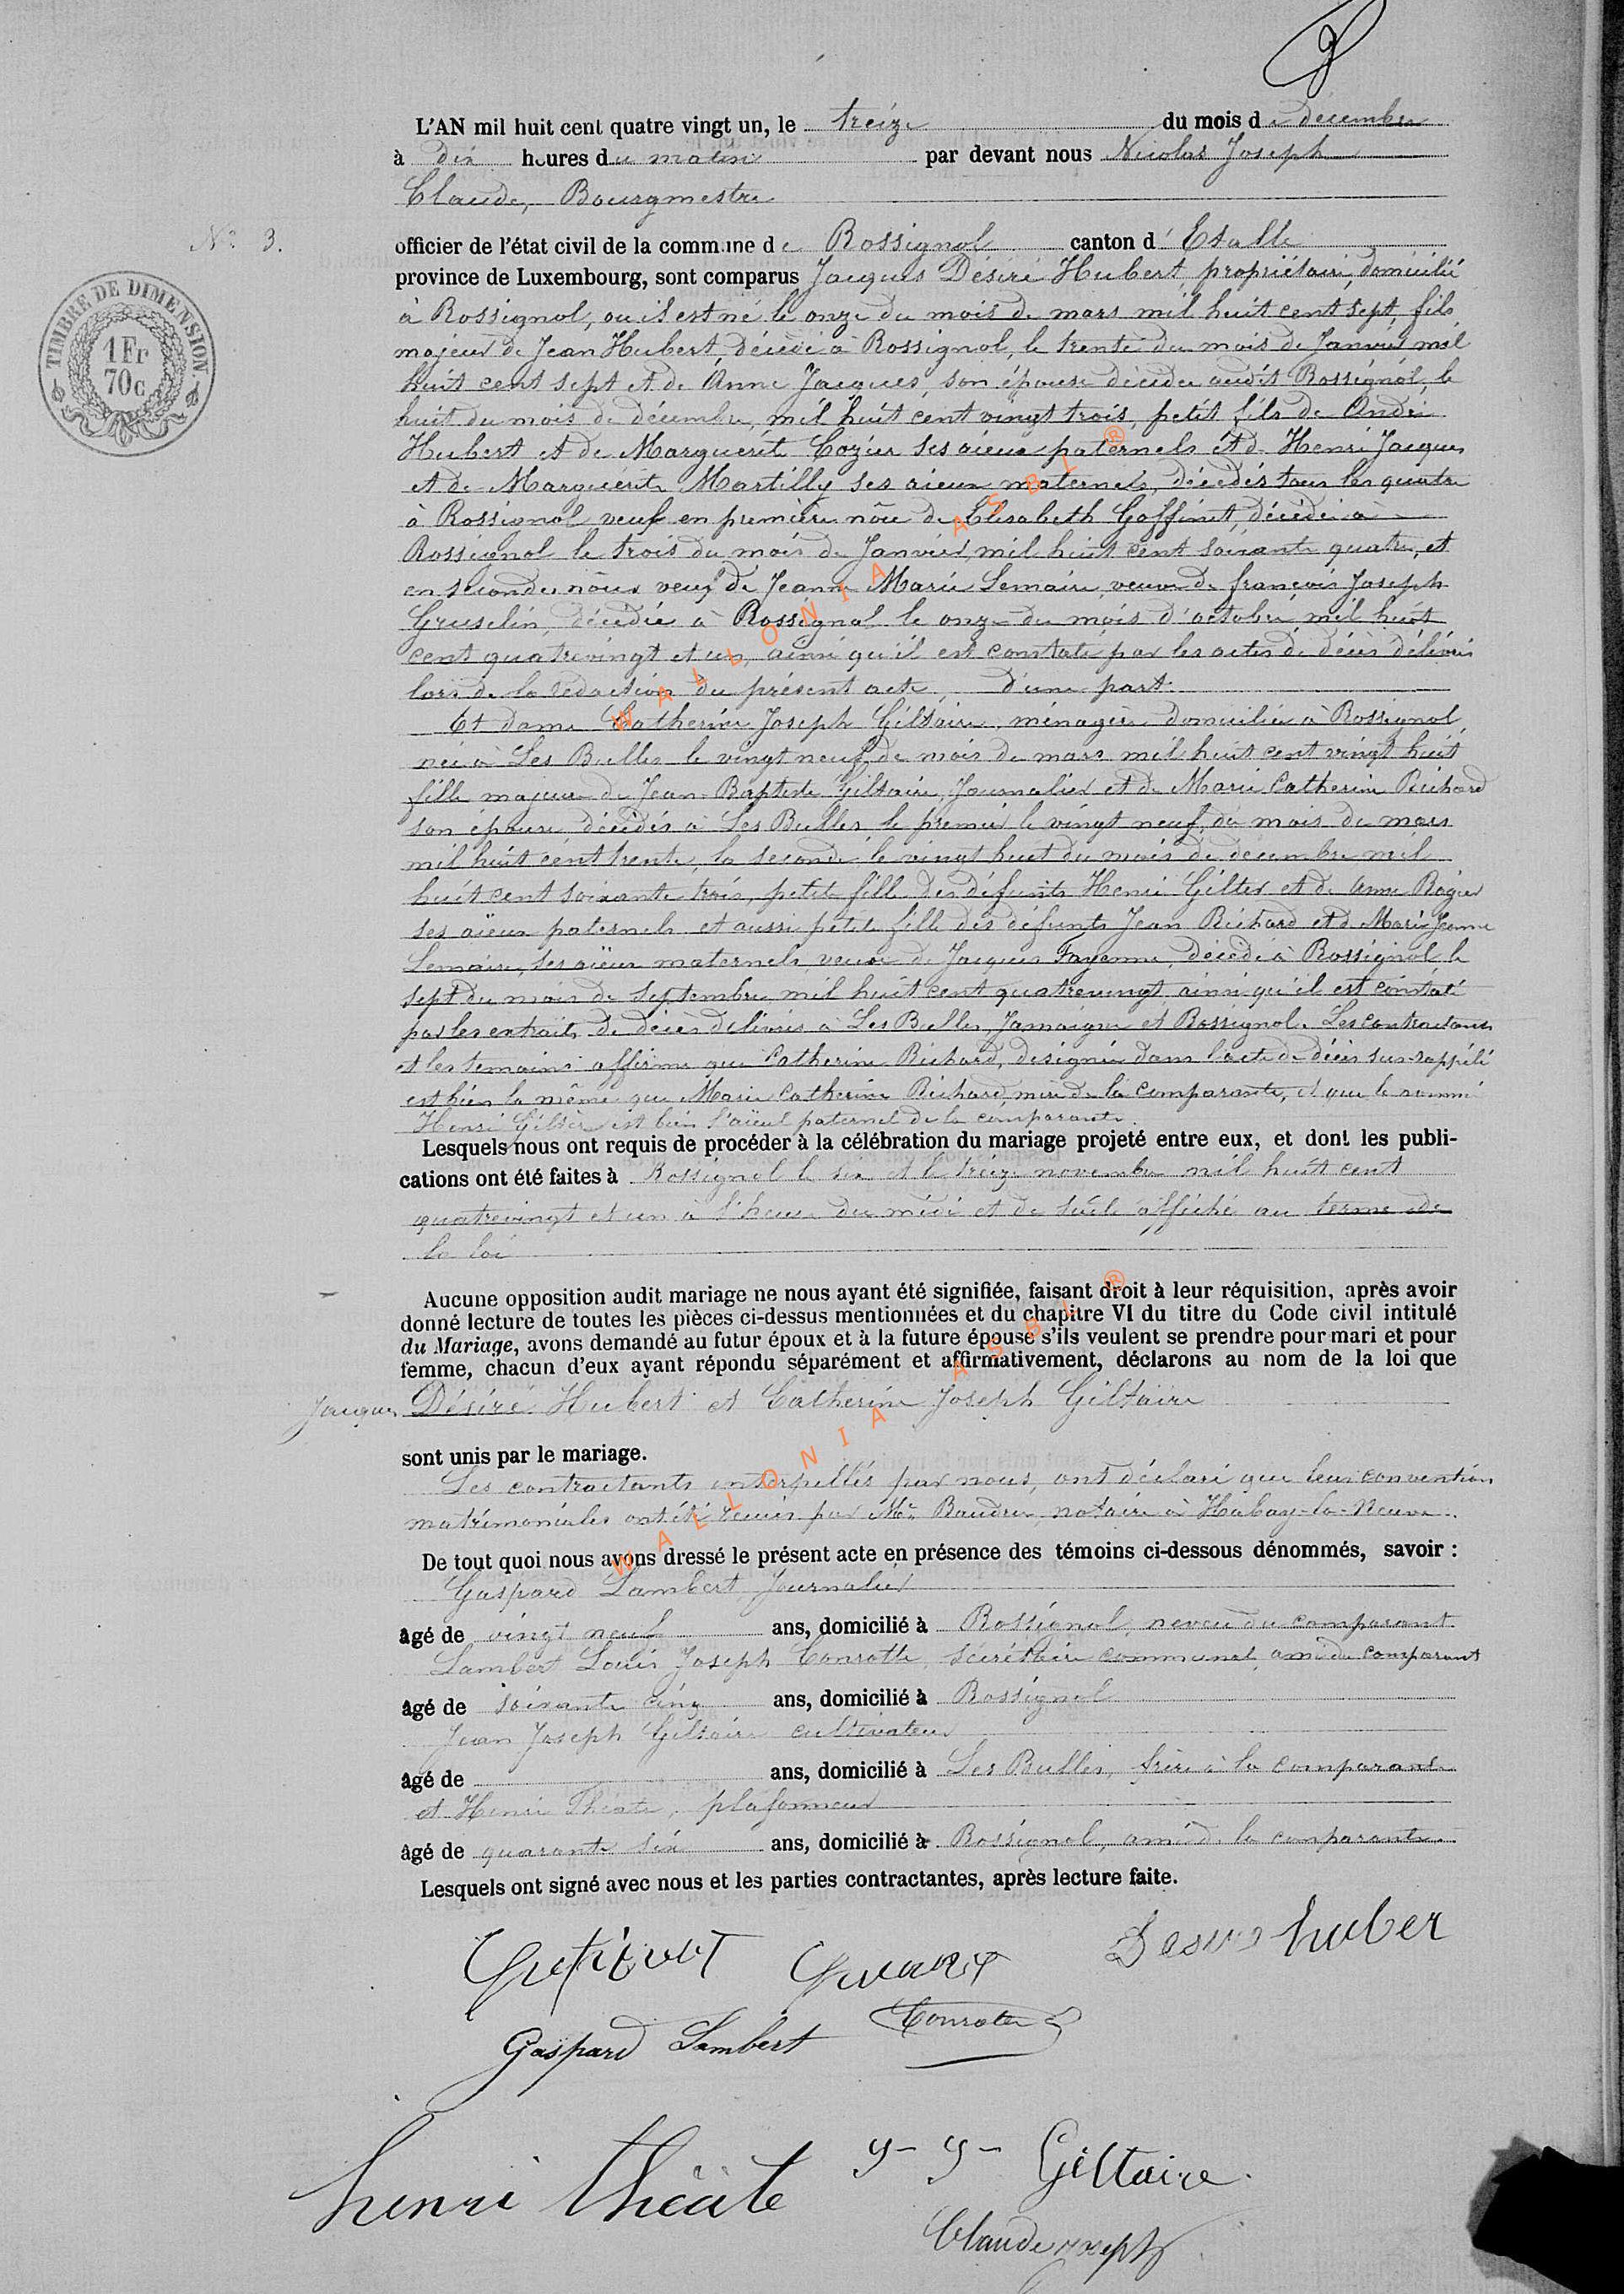 L'AN mil huit cent quatre vingt un, le treize du mois de décembre
à dix heures du matin par devant nous Nicolas Joseph
Claude, Bourgmestre
N° 3.
officier de l'état civil de la commune de Rossignol canton d'Etalle
province de Luxembourg, sont comparus Jacques Désiré Hubert, propriétaire, domicilié
à Rossignol, ou il est né le onze du mois de mars mil huit cent sept, fils
majeur de Jean Hubert, décédé à Rossignol, le trente du mois de Janvier mil
huit cent sept et de Anne Jacques, son épouse décédée audit Rossignol, le
huit du mois de décembre, mil huit cent vingt trois, petit fils de André
Hubert et de Marguerite Cozier ses aieux paternels et de Henri Jacques
et de Marguerite Martilly ses aieux maternels, décédés tous les quatre
à Rossignol veuf en première nôce de Elisabeth Goffinet, décédée à
Rossignol le trois du mois de Janvier, mil huit cent soixante quatre, et
en seconde nôces veuf de Jeanne Marie Lemaire, veuve de françois Joseph
Gruselin, décédée à Rossignol le onze du mois d'octobre mil huit
cent quatrevingt et un, ainsi qu'il est constaté par les actes de décès délivrés
lors de la rédaction du présent acte, d'une part.
Et dame Catherine Joseph Giltaire, ménagère domiciliée à Rossignol,
née à Les Bulles le vingt neuf de mois de mars mil huit cent vingt huit
fille majeure de Jean-Baptiste Giltaire, Journalier et de Marie Catherine Richard
son épouse, décédés à Les Bulles le premier le vingt neuf du mois de mars
mil huit cent trente, la seconde le vingt huit du mois de decembre mil
huit cent soixante trois, petite fille des défunts Henri Gilter et de Anne Rogier
ses aïeux paternels et aussi petite fille des défunts Jean Richard et de Marie Jeanne
Lemaire, ses aïeux maternels, veuve de Jacques Fayenne, décédé à Rossignol le
sept du mois de septembre mil huit cent quatrevingt, ainsi qu'il est constaté
par les extraits de décès délivrés à Les Bulles, Jamoigne et Rossignol. Les contractants
et les temoins affirme que Catherine Richard, designée dans l'acte de décès sus-rappelé
est bien la même que Marie Catherine Richard, mère de la comparante, et que le nommé
Henri Gilter est bien l'aïeul paternel de la comparante.
Lesquels nous ont requis de procéder à la célébration du mariage projeté entre eux, et dont les publi-
cations ont été faites à Rossignol le six et le treize novembre mil huit cent
quatrevingt et un à l'heure du midi et de suite affiché au terme de
la loi
Aucune opposition audit mariage ne nous ayant été signifiée, faisant droit à leur réquisition, après avoir
donné lecture de toutes les pièces ci-dessus mentionnées et du chapitre VI du titre du Code civil intitulé
du Mariage, avons demandé au futur époux et à la future épouse s'ils veulent se prendre pour mari et pour
femme, chacun d'eux ayant répondu séparément et affirmativement, déclarons au nom de la loi que
Jacques Désiré Hubert et Catherine Joseph Giltaire
sont unis par le mariage.
Les contractants interpellés par nous, ont déclaré que leur convention
matrimoniales ont été reçues par Mr Baudru, notaire à Habay-la-Neuve.
De tout quoi nous avons dressé le présent acte en présence des témoins ci-dessous dénommés, savoir :
Gaspard Lambert Journalier
âgé de vingt neuf ans, domicilié à Rossignol, neveu du comparant
Lambert Louis Joseph Conrotte, secrétaire communal, ami du comparant
âgé de soixante cinq ans, domicilié à Rossignol
Jean Joseph Giltaire cultivateur
âgé de ans, domicilié à Les Bulles, frère à la comparante
et Henri Théate, plafonneur
âgé de quarante six ans, domicilié à Rossignol, ami de la comparante.
Lesquels ont signé avec nous et les parties contractantes, après lecture faite.
huber
Gaspard Lambert
henri théate
J- J- Giltaire
Claude joseph
TIMBRE DE DIMENSION.
1 Fr
70 c
WALLONIA ASBL ®
WALLONIA ASBL ®